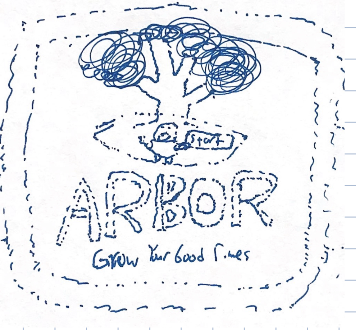 Start
ARBOR
Grow Your Good Times